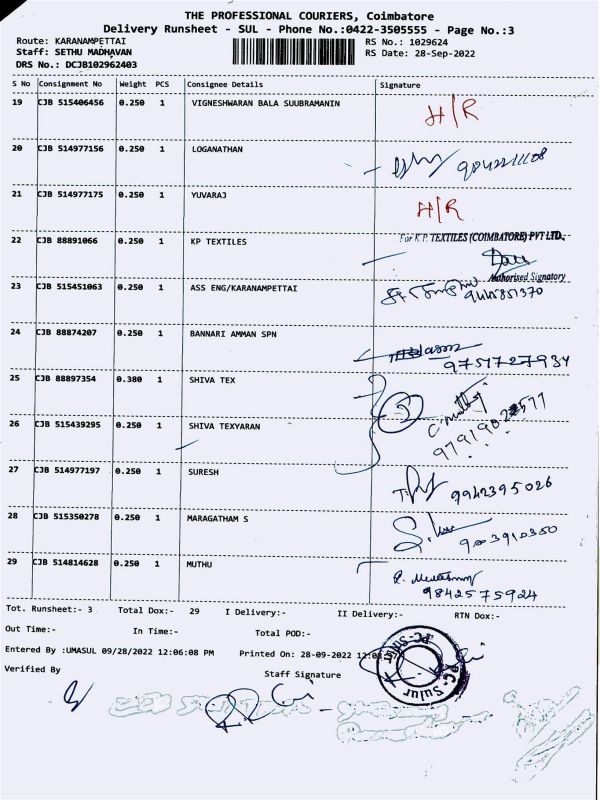 THE PROFESSIONAL COURIERS, Coimbatore
Delivery Runsheet - SUL - Phone No.:0422-3505555 - Page No.:3
Route: KARANAMPETTAI RS No.: 1029624
Staff: SETHU MADHAVAN RS Date: 28-Sep-2022
DRS No.: DCJB102962403
S No Consignment No Weight PCS Consignee Details Signature
19 CJB 515406456 0.250 1 VIGNESHWARAN BALA SUUBRAMANIN H/R
20 CJB 514977156 0.250 1 LOGANATHAN
21 CJB 514977175 0.250 1 YUVARAJ H/R
For K.P. TEXTILES (COIMBATORE) PVT LTD.,
22 CJB 88891066 0.250 1 KP TEXTILES
Authorised Signatory
23 CJB 515451063 0.250 1 ASS ENG/KARANAMPETTAI 9444851370
24 CJB 88874207 0.250 1 BANNARI AMMAN SPN
9751727934
25 CJB 88897354 0.380 1 SHIVA TEX
26 CJB 515439295 0.250 1 SHIVA TEXYARAN
27 CJB 514977197 0.250 1 SURESH 9942395026
28 CJB 515350278 0.250 1 MARAGATHAM S 9003910350
29 CJB 514814628 0.250 1 MUTHU
9842575924
Tot. Runsheet:- 3 Total Dox:- 29 I Delivery:- II Delivery:- RTN Dox:-
Out Time:- In Time:- Total POD:-
Entered By :UMASUL 09/28/2022 12:06:08 PM Printed On: 28-09-2022
Verified By Staff Signature
Sulur